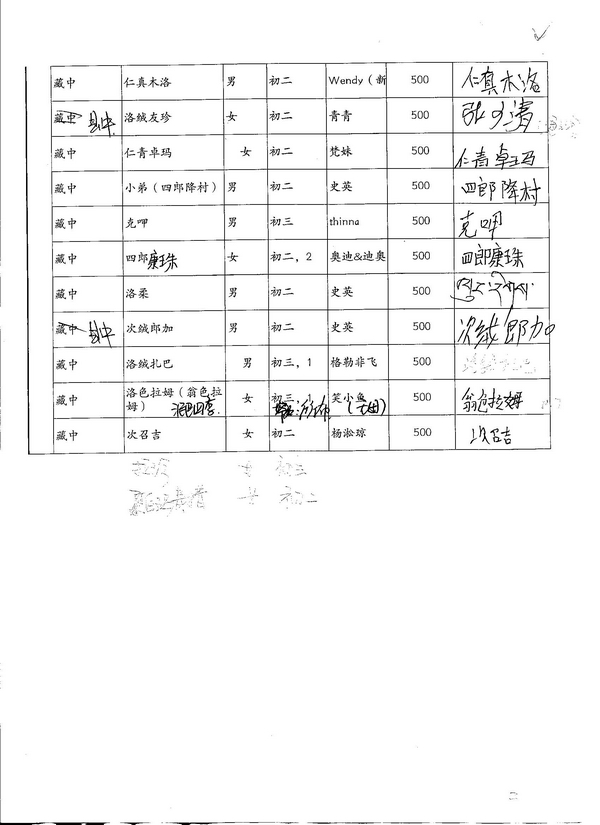 藏中 仁真木洛 男 初二 Wendy（新 500 仁真木洛
藏中 县中 洛绒友珍 女 初二 青青 500
藏中 仁青卓玛 女 初二 梵妹 500 仁青卓玛
藏中 小弟（四郎降村） 男 初二 史英 500 四郎降村
藏中 克呷 男 初三 thinna 500 克呷
藏中 四郎康珠 女 初二，2 奥迪&迪奥 500 四郎康珠
藏中 洛柔 男 初二 史英 500
藏中 县中 次绒郎加 男 初二 史英 500 次绒郎加
藏中 洛绒扎巴 男 初三，1 格勒非飞 500
藏中 洛色拉姆（翁色拉 女 初三，1 笑小鱼 500 翁色拉姆
姆）
藏中 次召吉 女 初二 杨淞琼 500 次召吉
女 初三
女 初二